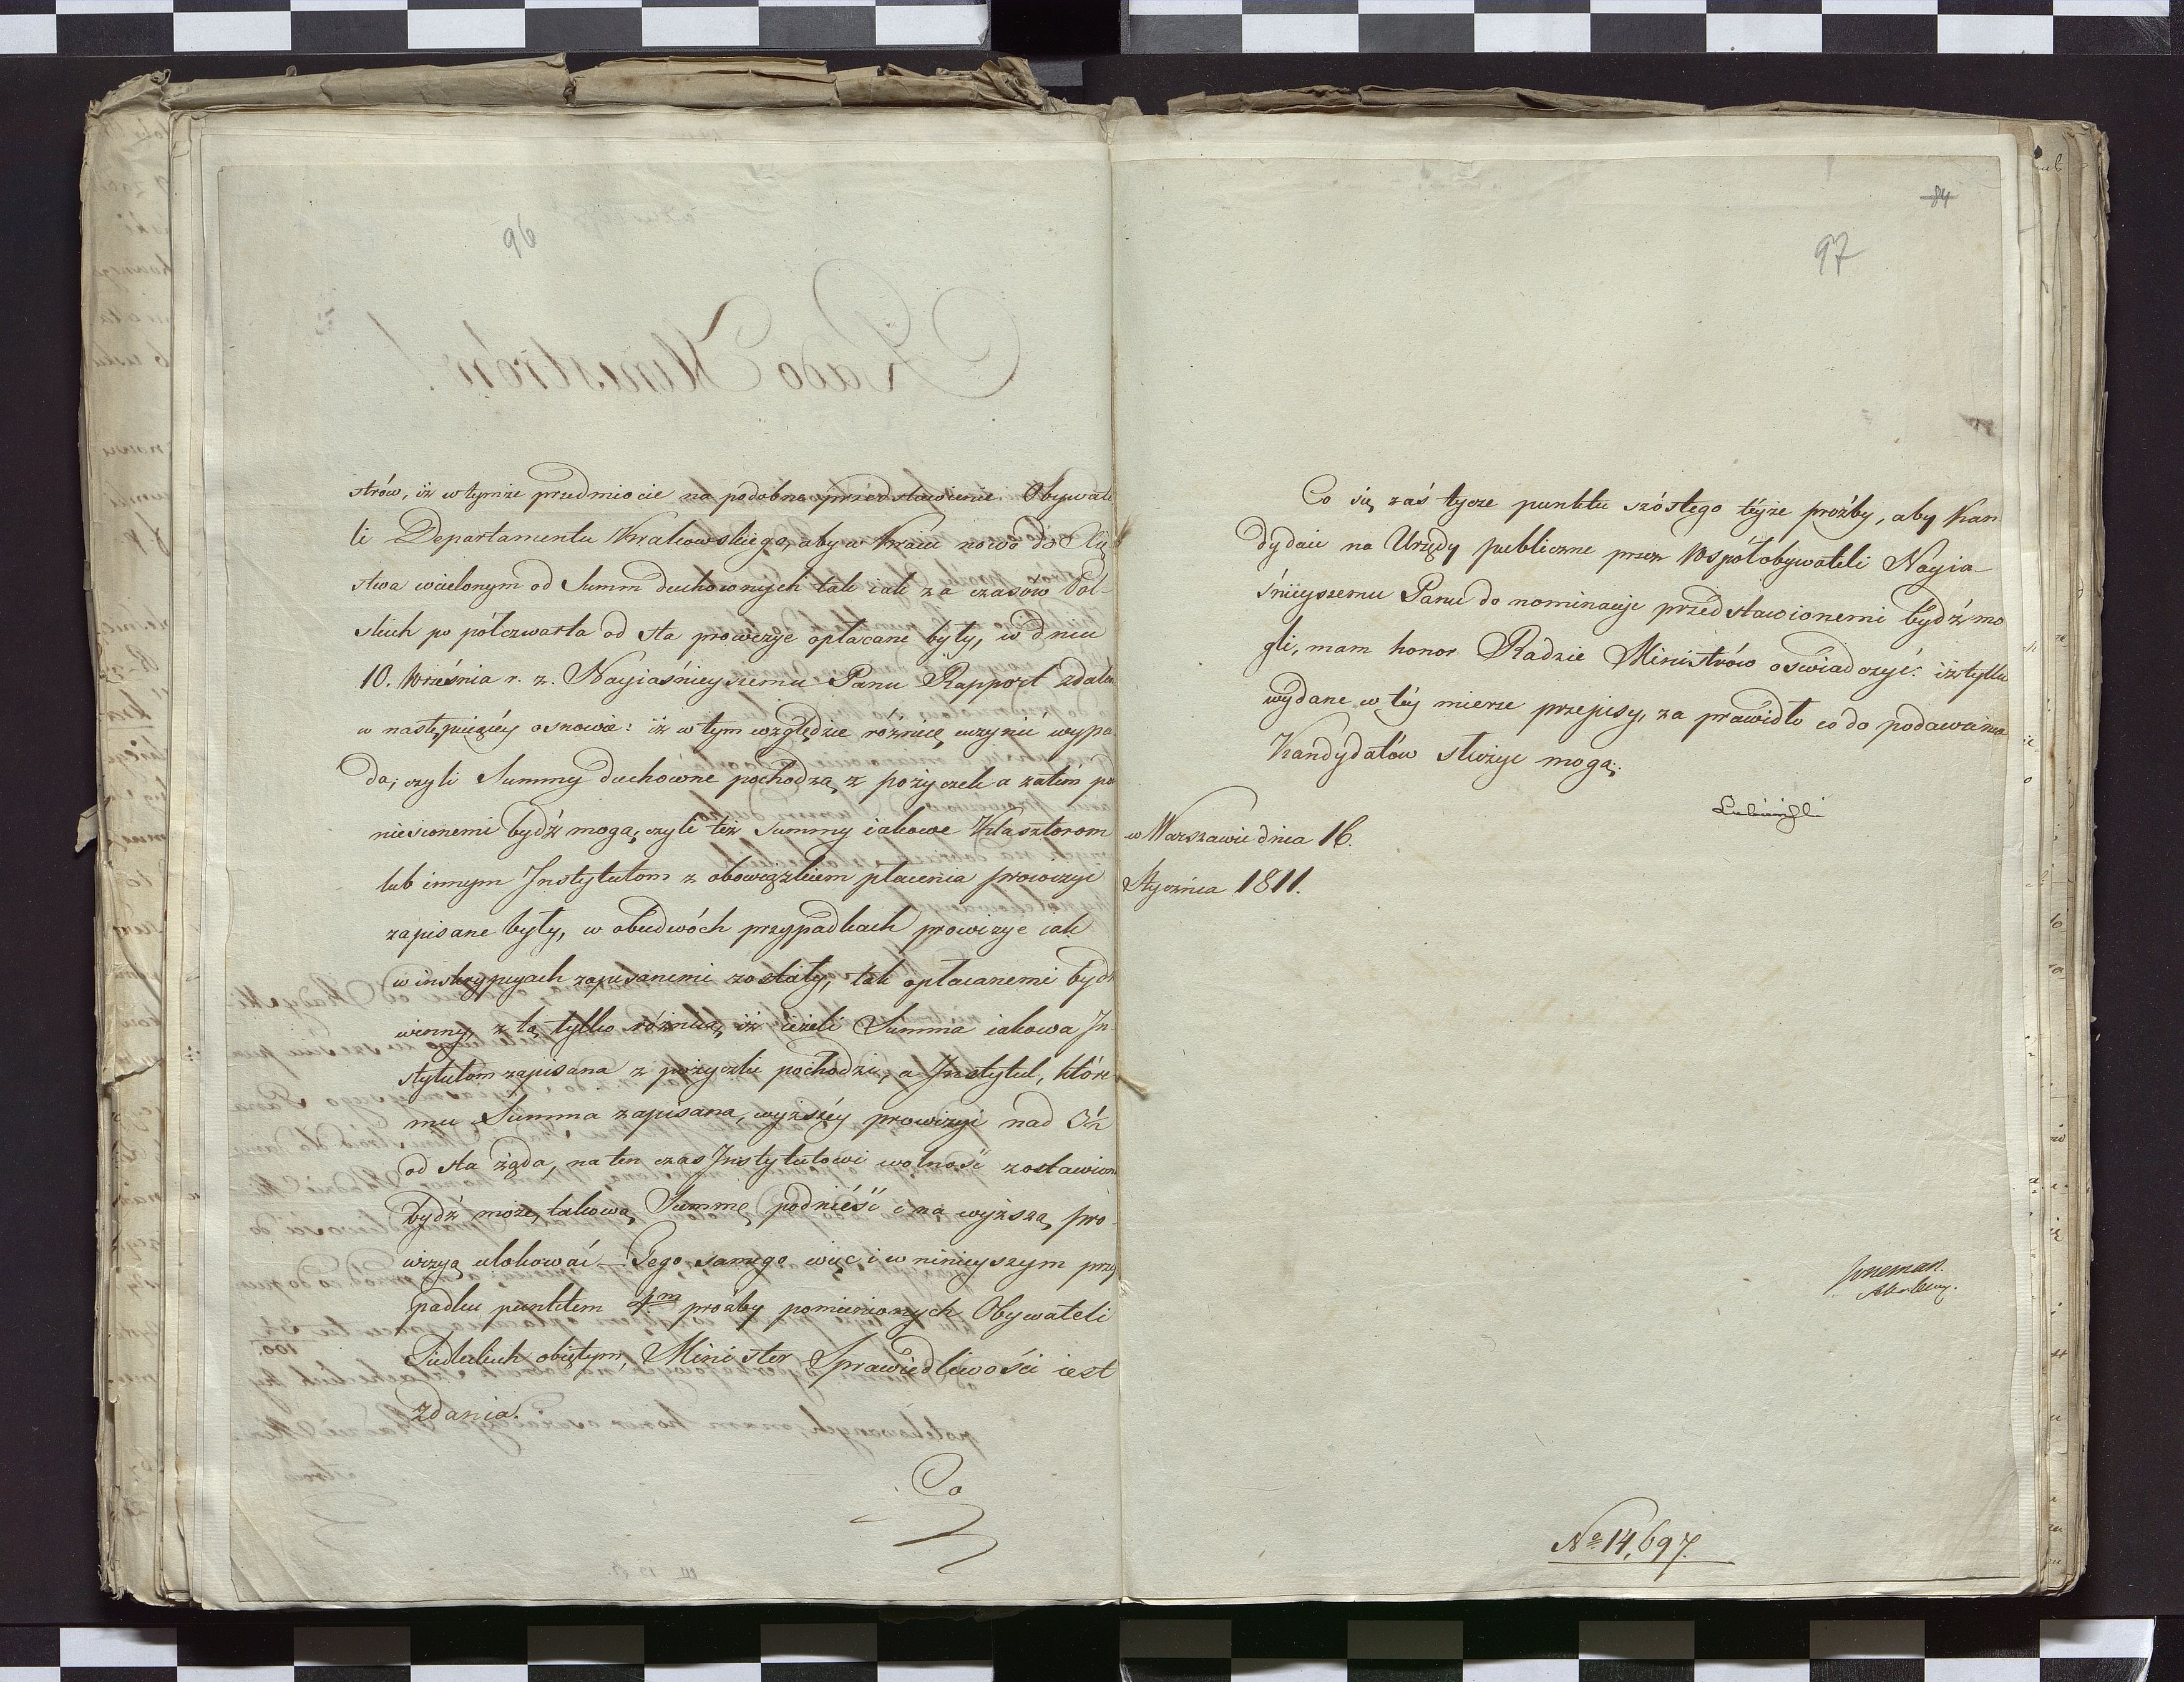 96
strów, iż w tymże przedmiocie na podobne przedstawienie Obywate
li Departamentu Krakowskiego, aby w Kraiu nowo do Xię
stwa wcielonym od Summ duchownych tak iak za czasów Pol-
skich po półczwarta od sta prowizye opłacane były, w dniu
10. Września r. z. Nayiaśnieyszemu Panu Rapport zdałem
w następuiącéy osnowie: iż w tym względzie różnicę uczynić wypa
da, czyli Summy duchowne pochodzą z pożyczek a zatém pod
niesionemi bydź mogą, czyli też Summy iakowe Klasztorom
lub innym Instytutom z obowiązkiem płacenia prowizyi
zapisane były, w obudwóch przypadkach prowizye iak
w inskrypcyach zapisanemi zostały, tak opłacanemi bydź
winny, z tą tylko różnicą, iż ieżeli Summa iakowa In-
stytutom zapisana z pożyczki pochodzi, a Instytut, które
mu Summa zapisana, wyższéy prowizyi nad 3½
od sta żąda, na ten czas Instytutowi wolność zostawiona
bydź może, takową Summę podnieść i na wyższą pro-
wizyą ulokować – Tego samego więc i w ninieyszym przy
padku punktem 4m prośby pomienionych Obywateli
Siedleckich obiętym, Minister Sprawiedliwości iest
zdania.
Co
84
97
Co się zaś tycze punktu szóstego téyże prośby, aby Kan
dydaci na Urzędy publiczne przez Współobywateli Nayia-
śnieyszemu Panu do nominacyi przedstawionemi bydź mo
gli, mam honor Radzie Ministrów oświadczyć: iż tylko
wydane w téy mierze przepisy, za prawidło co do podawania
Kandydatów służyć mogą.
Lubieński
w Warszawie dnia 16.
Stycznia 1811.
No 14,697.